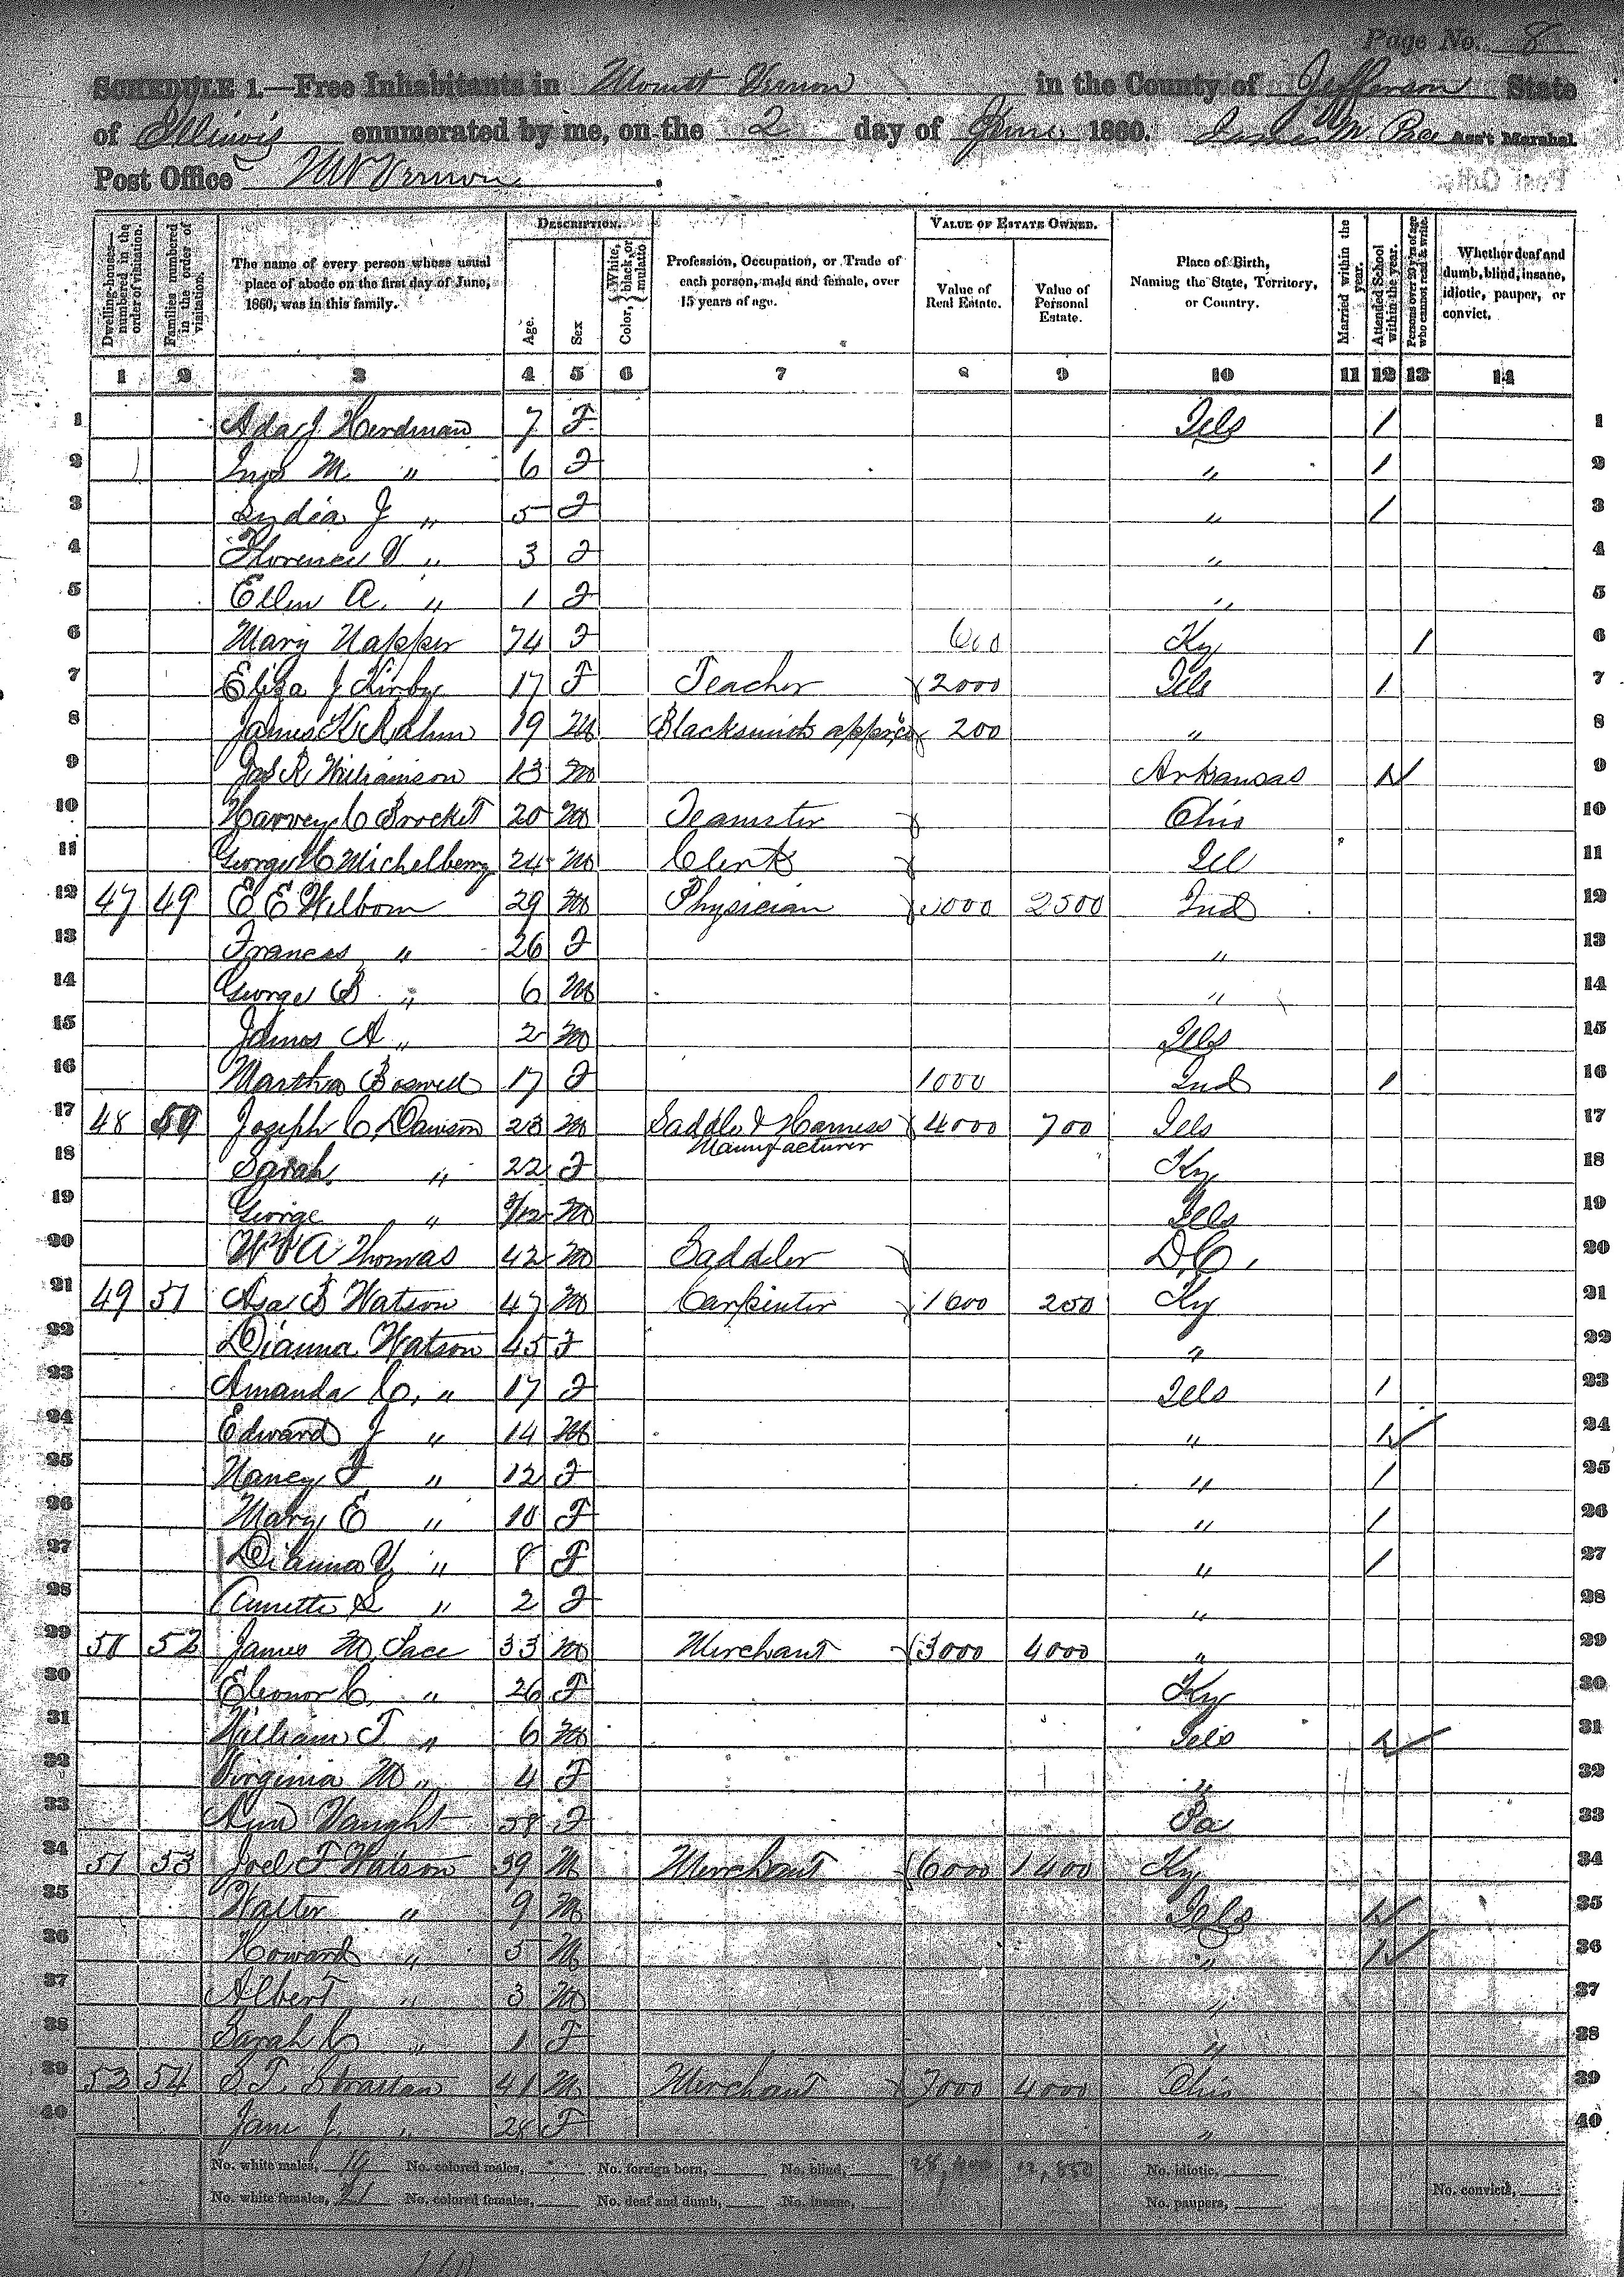 Page No. 8
SCHEDULE 1.—Free Inhabitants in Mount Vernon in the County of Jefferson State
of Illinois enumerated by me, on the 2 day of June 1860. James M. Pace Ass't Marshal.
Post Office Mt Vernon
Dwelling-houses—numbered in the order of visitation.
Families numbered in the order of visitation.
The name of every person whose usual place of abode on the first day of June, 1860, was in this family.
DESCRIPTION.
Age.
Sex
Color, { White, black, or mulatto
Profession, Occupation, or Trade of each person, male and female, over 15 years of age.
VALUE OF ESTATE OWNED.
Value of Real Estate.
Value of Personal Estate.
Place of Birth, Naming the State, Territory, or Country.
Married within the year.
Attended School within the year.
Persons over 20 y'rs of age who cannot read & write.
Whether deaf and dumb, blind, insane, idiotic, pauper, or convict.
1 2 3 4 5 6 7 8 9 10 11 12 13 14
1 Ada J. Herdman 7 F Ills 1 1
2 M " 6 F " 1 2
3 Lydia J " 5 F " 1 3
4 Florence V " 3 F " 4
5 Ellen A. " 1 F " 5
6 Mary Napper 74 F 600 Ky 1 6
7 Eliza J Kirby 17 F Teacher 2000 Ills 1 7
8 James K Rahm 19 M Blacksmith 200 " 8
9 Jas R Williamson 13 M Arkansas 1 9
10 Harvey C Brocket 20 M Teamster Ohio 10
11 George C Michelberry 24 M Clerk Ill 11
12 47 49 E E Welborn 29 M Physician 3000 2500 Ind 12
13 Frances " 26 F " 13
14 George B " 6 M " 14
15 James A " 2 M Ills 15
16 Martha Boswell 17 F 1000 Ind 1 16
17 48 50 Joseph C Dawson 23 M Saddle & Harness 4000 700 Ills 17
Manufacturer
18 Sarah " 22 F Ky 18
19 George " /12 M Ills 19
20 A Thomas 42 M Saddler D.C. 20
21 49 51 Asa B Watson 47 M Carpenter 1600 250 Ky 21
22 Dianna Watson 45 F " 22
23 Amanda C. " 17 F Ills 1 23
24 Edward J " 14 M " 1 24
25 Nancy F " 12 F " 1 25
26 Mary E " 10 F " 1 26
27 Dianna V " 8 F " 1 27
28 Annette S " 2 F " 28
29 50 52 James M Pace 33 M Merchant 3000 4000 " 29
30 Eleonor C. " 26 F Ky 30
31 William T " 6 M Ills 1 31
32 Virginia M " 4 F " 32
33 Ann Vaught 58 F Pa 33
34 51 53 Joel F Watson 39 M Merchant 6000 1400 Ky 34
35 Walter " 9 M Ills 1 35
36 Howard " 5 M " 1 36
37 Albert " 3 M " 37
38 Sarah C " 1 F " 38
39 53 54 S T Strattan 41 M Merchant 7000 4000 Ohio 39
40 Jane J. " 28 F " 40
No. white males, 19 No. colored males, No. foreign born, No. blind, 28,400 12,850 No. idiotic,
No. white females, 21 No. colored females, No. deaf and dumb, No. insane, No. paupers, No. convicts,